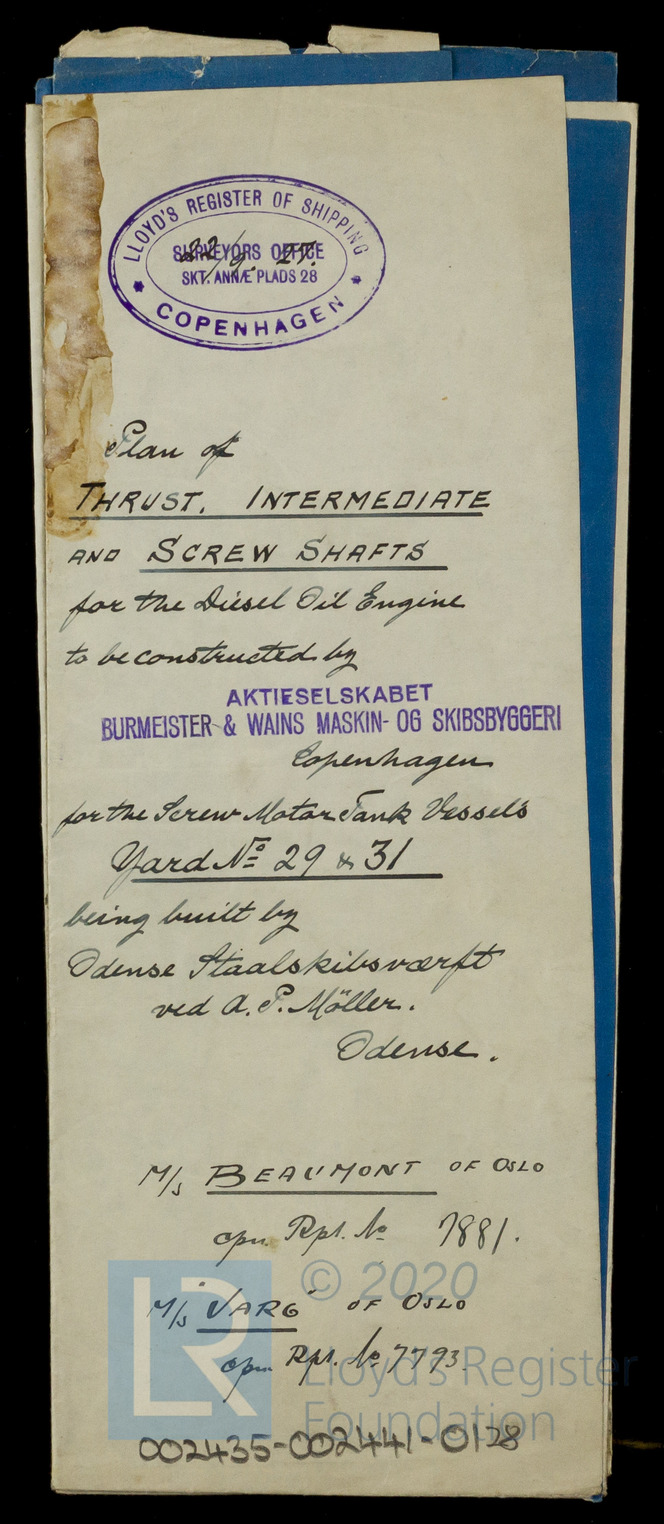 LLOYD'S REGISTER OF SHIPPING
SURVEYORS OFFICE
22/9. 27.
SKT. ANNÆ PLADS 28
COPENHAGEN
Plan of
THRUST, INTERMEDIATE
AND SCREW SHAFTS
for the Diesel Oil Engine
to be constructed by
AKTIESELSKABET
BURMEISTER & WAINS MASKIN- OG SKIBSBYGGERI
Copenhagen
for the Screw Motor Tank Vessels
Yard No 29 & 31
being built by
Odense Staalskibsværft
ved A. P. Möller.
Odense.
M/S BEAUMONT OF OSLO
cpn. Rpt. No 7881.
M/S "VARG" OF OSLO
cpn Rpt. No 7793
LR
© 2020
Lloyd's Register
Foundation
002435-002441-0128